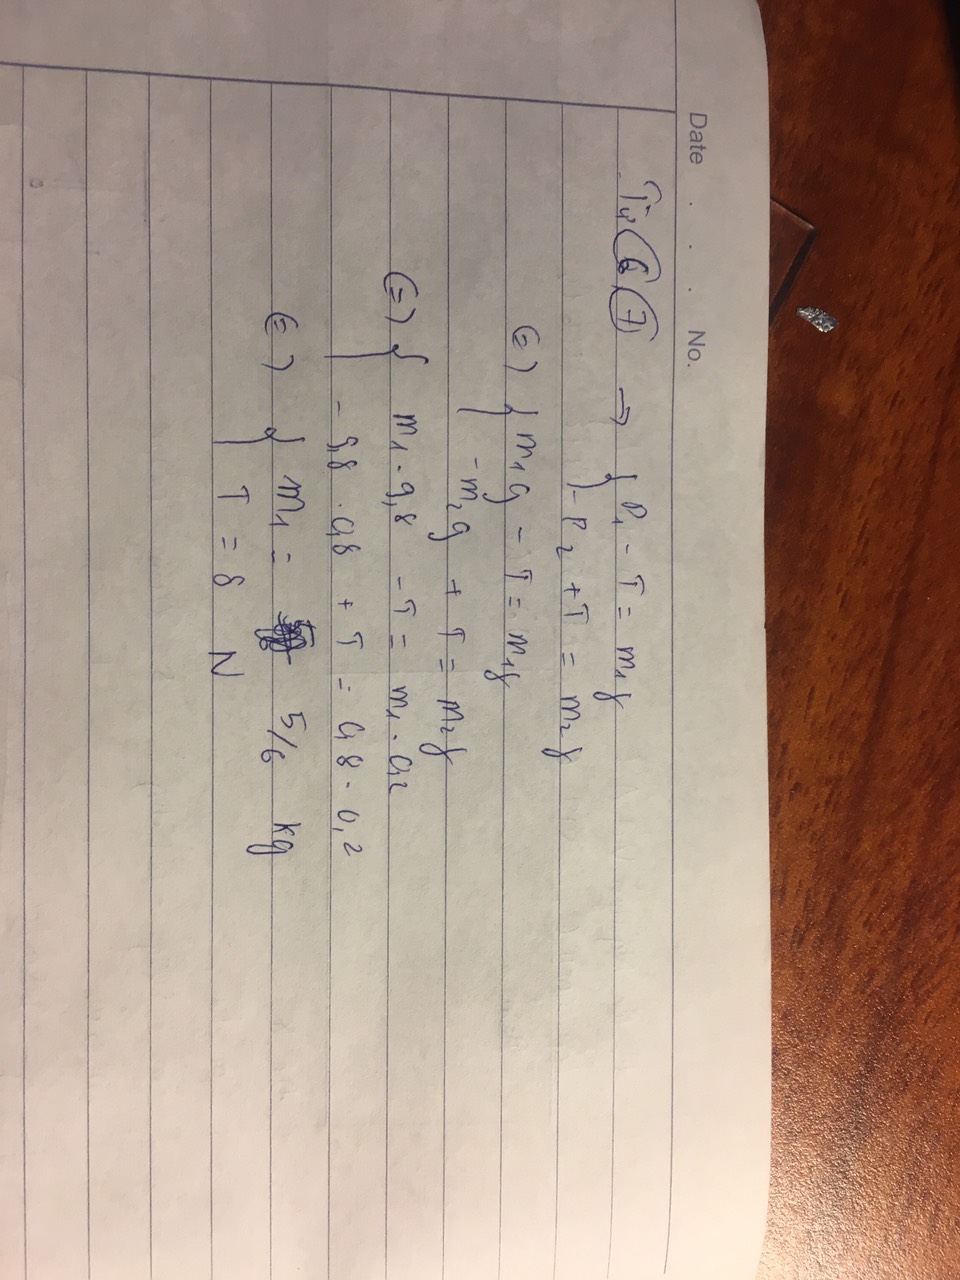 Date . . . No.
Từ (6)(7) → { P₁ - T = m₁γ
-P₂ + T = m₂γ
(=) { m₁g - T = m₁γ
-m₂g + T = m₂γ
(=) { m₁.9,8 - T = m₁.0,2
-9,8.0,8 + T = 0,8.0,2
(=) { m₁ = 5/6 kg
T = 8 N